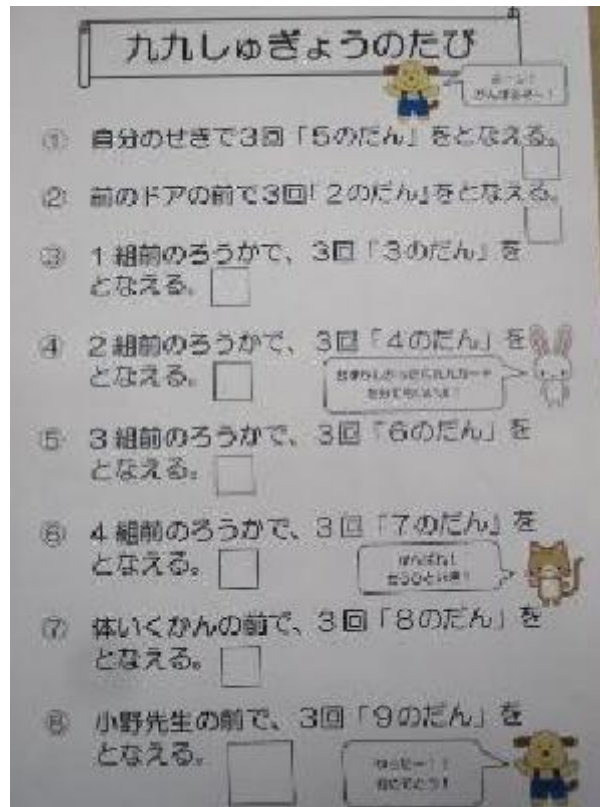 九九しゅぎょうのたび
① 自分のせきで3回「5のだん」をとなえる。
② 前のドアの前で3回「2のだん」をとなえる。
③ 1組前のろうかで、3回「3のだん」を
となえる。
④ 2組前のろうかで、3回「4のだん」を
となえる。
⑤ 3組前のろうかで、3回「6のだん」を
となえる。
⑥ 4組前のろうかで、3回「7のだん」を
となえる。
がんばれ!
もうひといき!
⑦ 体いくかんの前で、3回「8のだん」を
となえる。
⑧ 小野先生の前で、3回「9のだん」を
となえる。